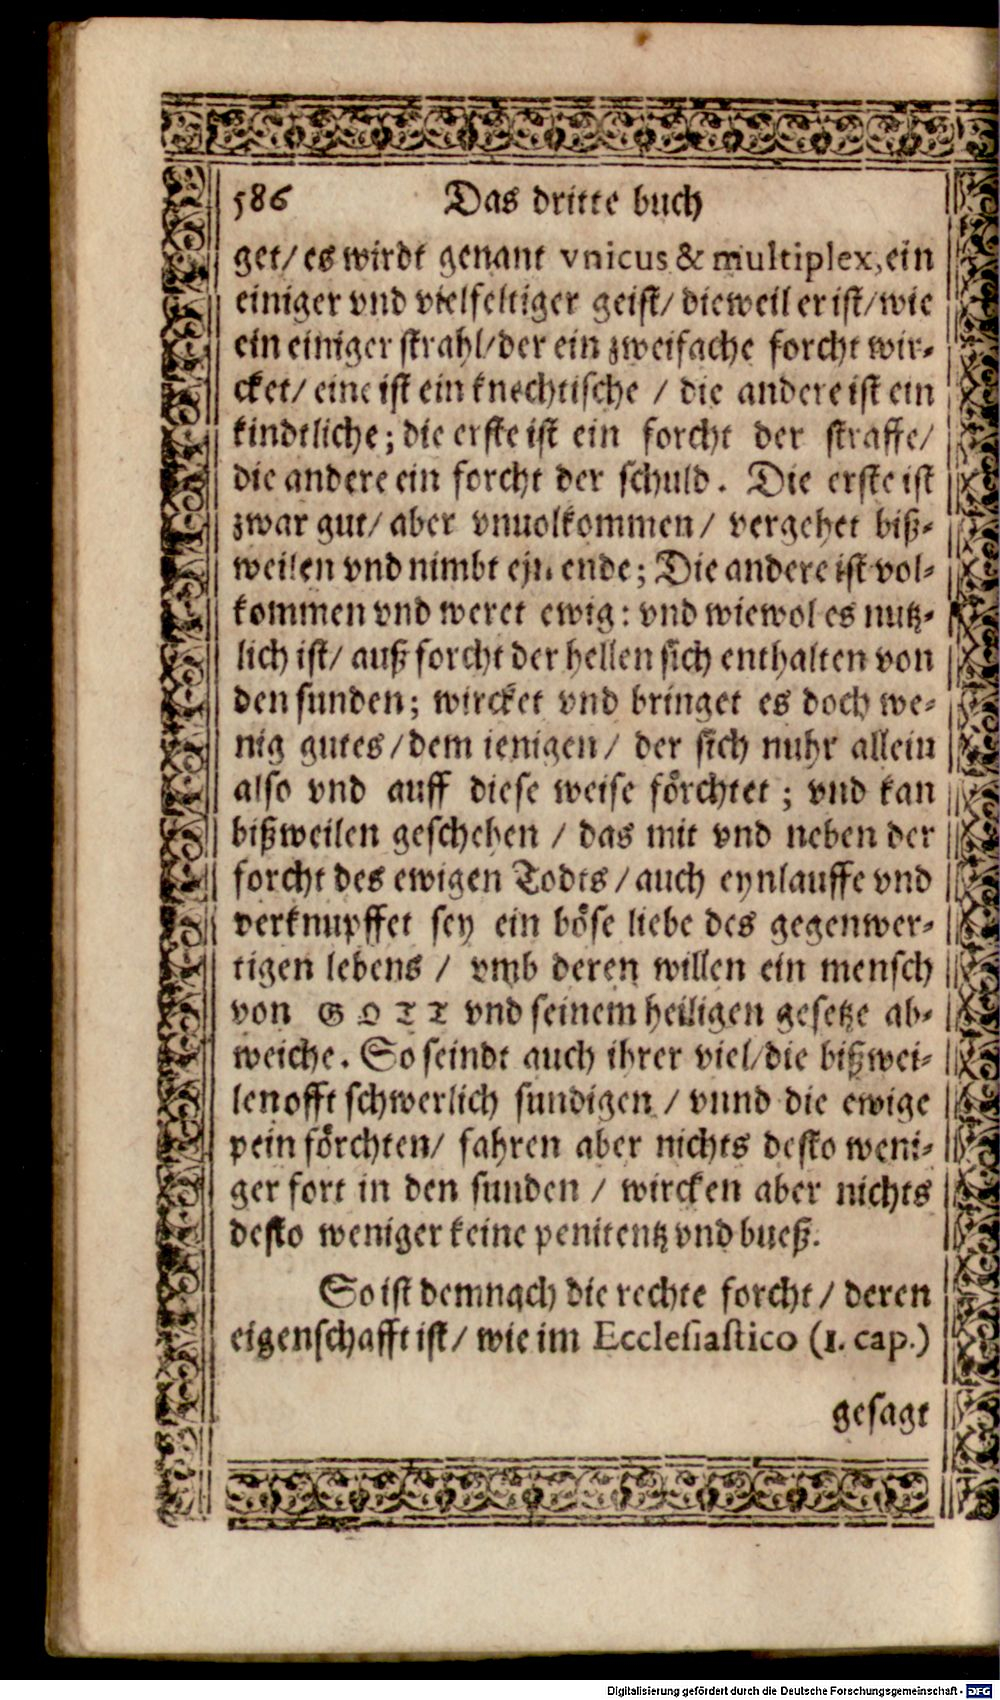 586 Das dritte buch
get/ es wirdt genant vnicus & multiplex, ein
einiger vnd vielfeltiger geist/ dieweil er ist/ wie
ein einiger strahl/ der ein zweifache forcht wir-
cket/ eine ist ein knechtische / die andere ist ein
kindtliche; die erste ist ein forcht der straffe/
die andere ein forcht der schuld. Die erste ist
zwar gut/ aber vnuolkommen/ vergehet biß-
weilen vnd nimbt ein ende; Die andere ist vol-
kommen vnd weret ewig: vnd wiewol es nutz-
lich ist/ auß forcht der hellen sich enthalten von
den sunden; wircket vnd bringet es doch we-
nig gutes/ dem ienigen/ der sich nuhr allein
also vnd auff diese weise förchtet; vnd kan
bißweilen geschehen / das mit vnd neben der
forcht des ewigen Todts / auch eynlauffe vnd
verknupffet sey ein böse liebe des gegenwer-
tigen lebens / vmb deren willen ein mensch
von GOTT vnd seinem heiligen gesetze ab-
weiche. So seindt auch ihrer viel/ die bißwei-
len offt schwerlich sundigen / vnnd die ewige
pein förchten/ fahren aber nichts desto weni-
ger fort in den sunden / wircken aber nichts
desto weniger keine penitentz vnd bueß.
So ist demnach die rechte forcht / deren
eigenschafft ist/ wie im Ecclesiastico (1. cap.)
gesagt
Digitalisierung gefördert durch die Deutsche Forschungsgemeinschaft - DFG